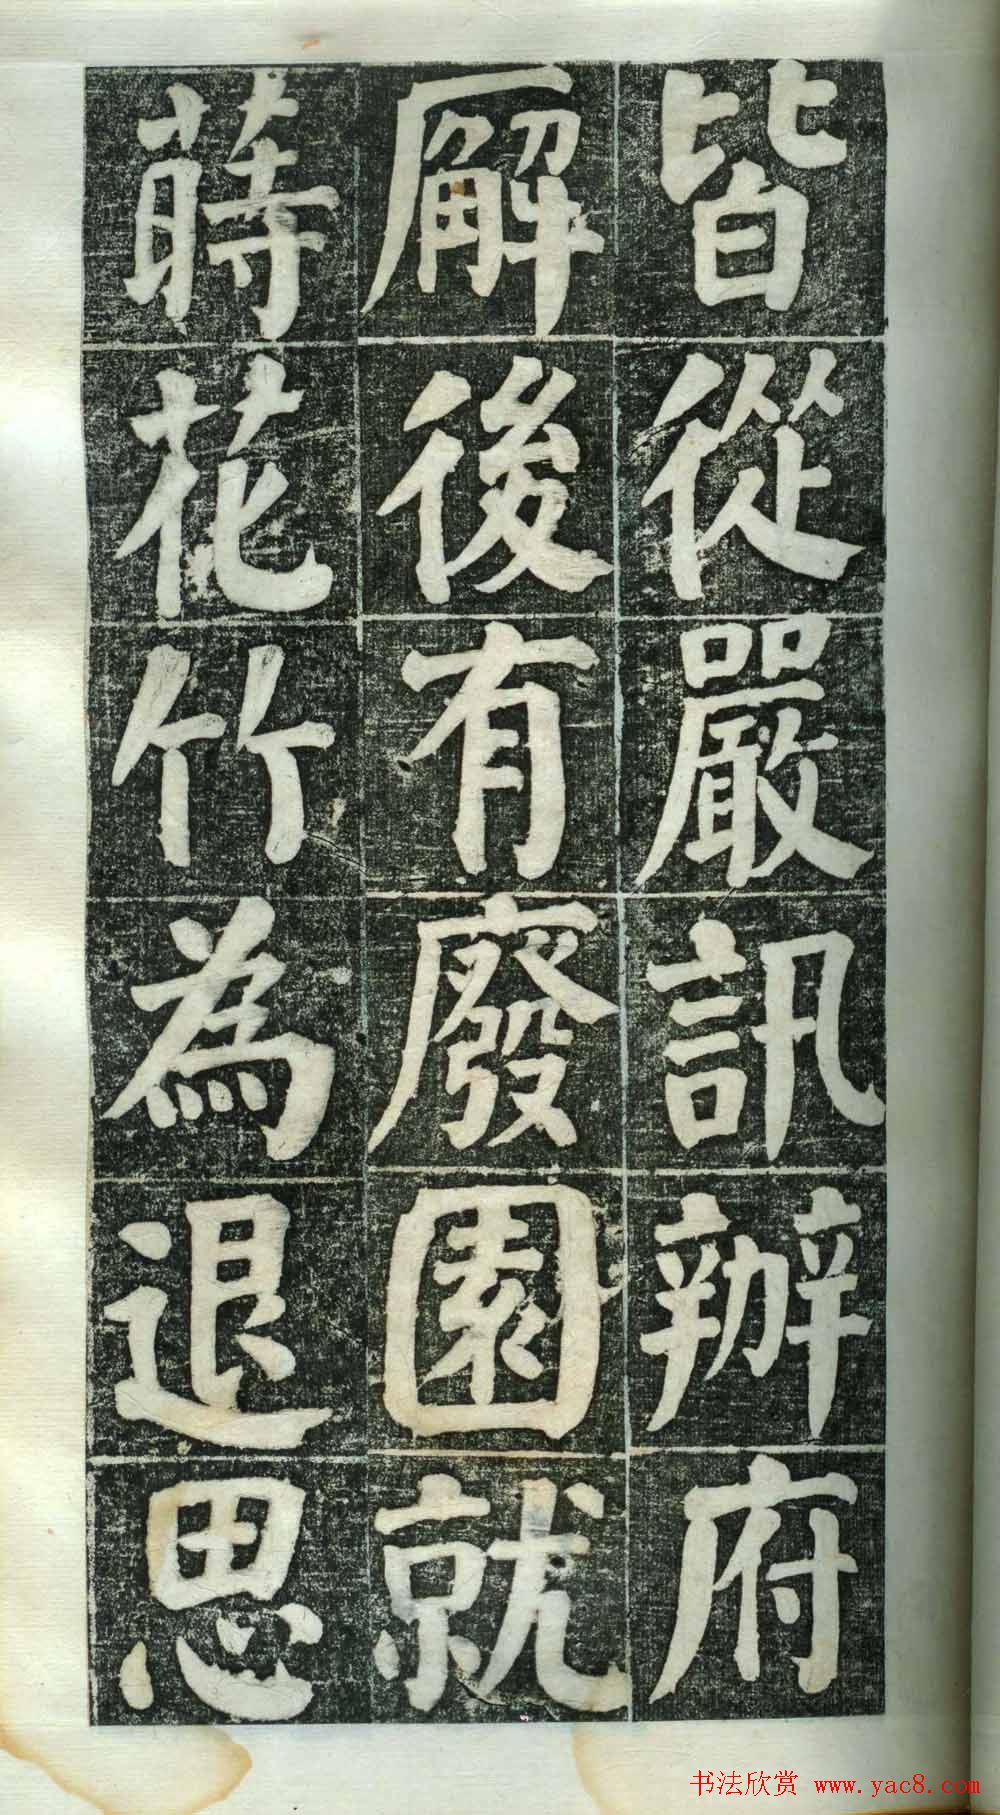 皆從嚴訊辦府
廨後有廢園就
蒔花竹為退思
书法欣赏 www.yac8.com